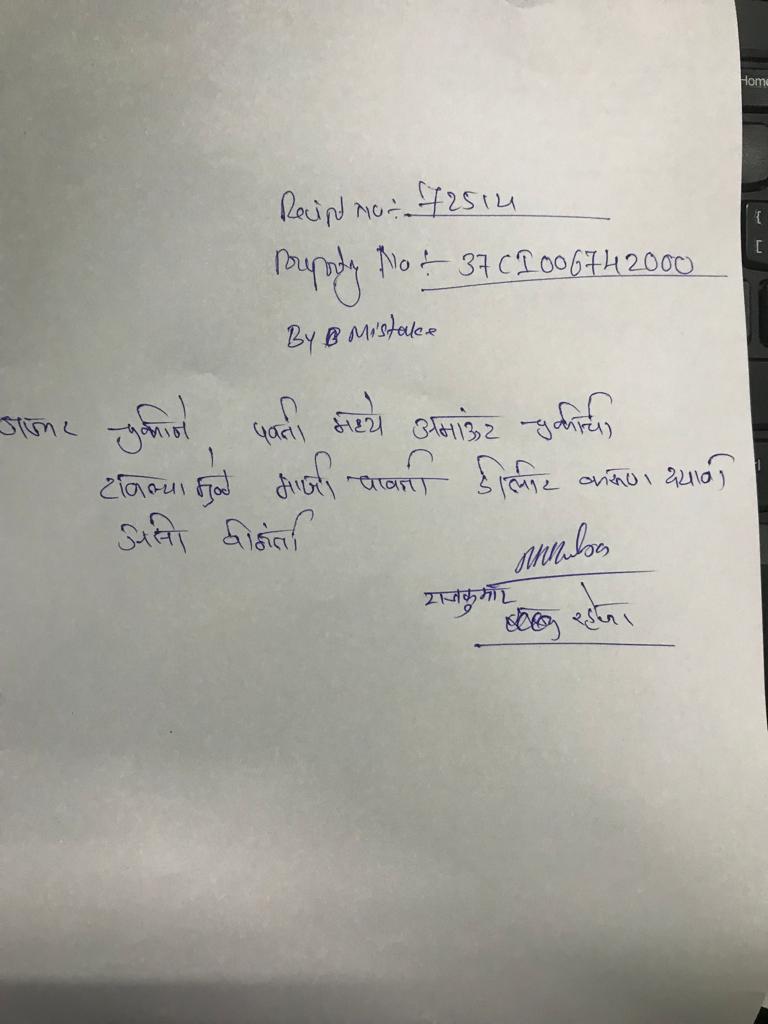 Recipt No :- 72514
Property No :- 37CI006742000
By Mistake
नजर चुकीने पवती मध्ये अमाऊंट चुकीची
टाकल्या मुळे माजी पावती डीलीट करूण दयावी
अशी वीनंती
राजकुमार
रहेजा